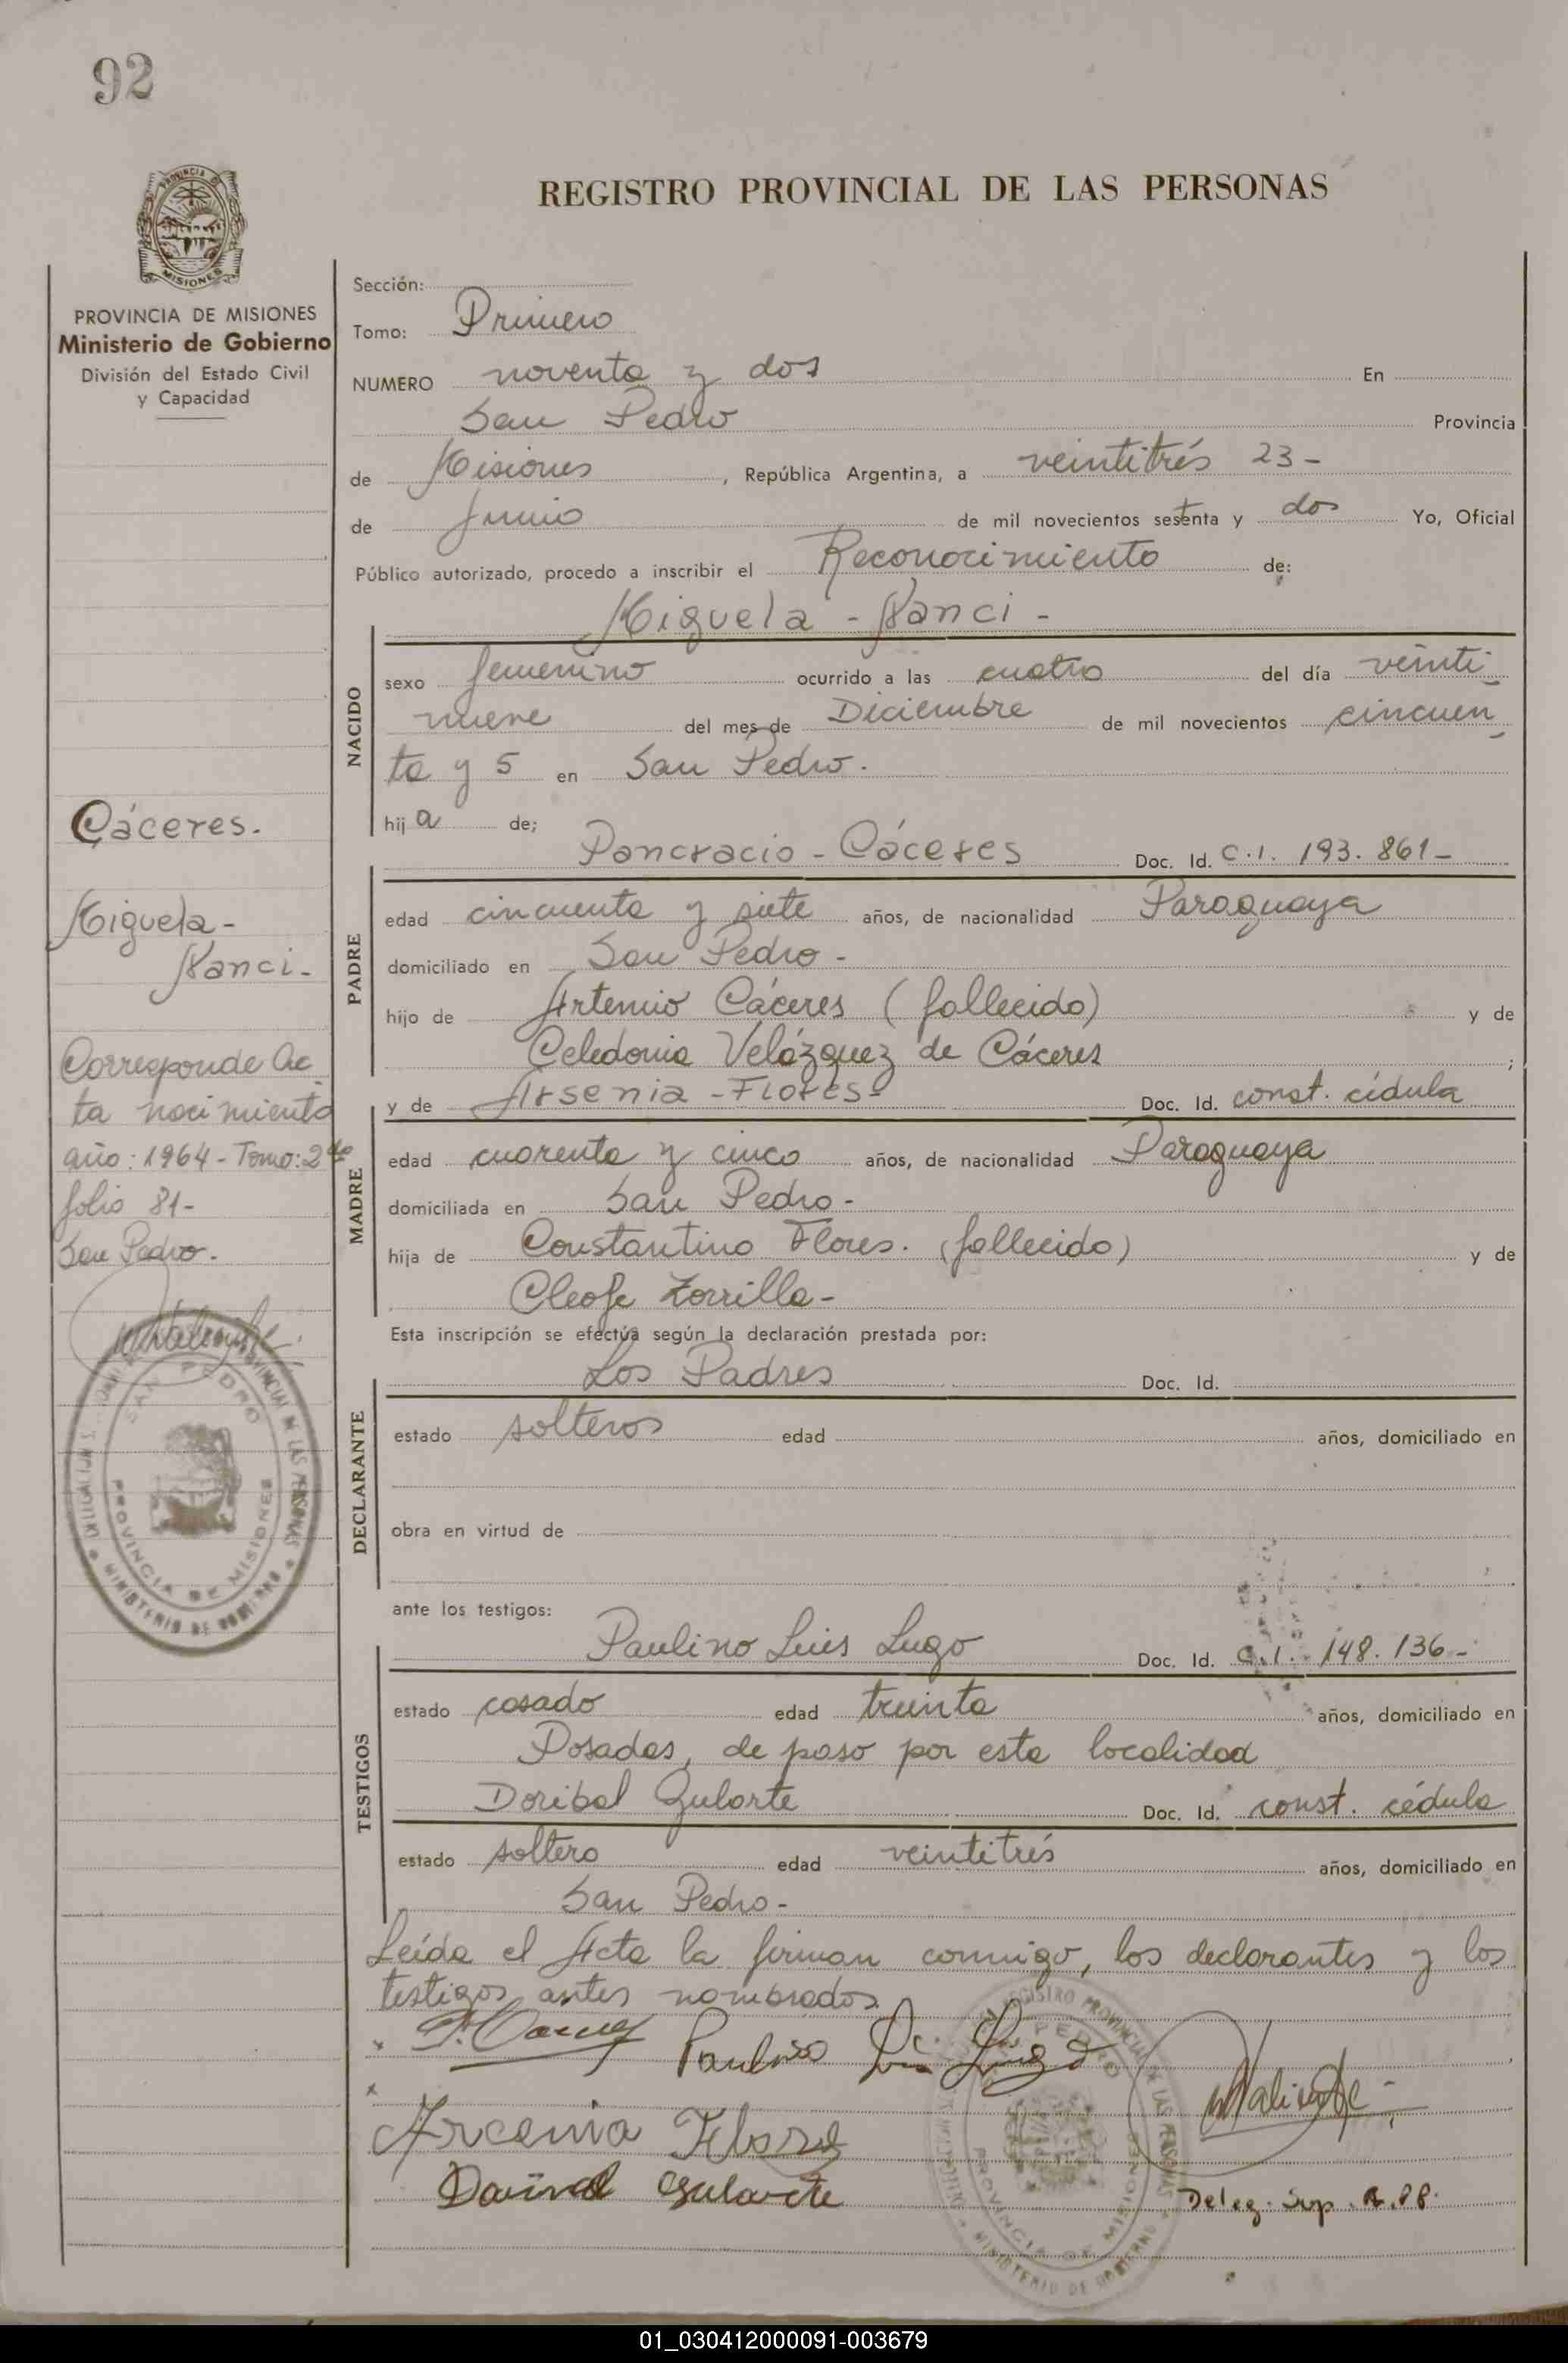 92
PROVINCIA DE MISIONES
Ministerio de Gobierno
División del Estado Civil
y Capacidad
REGISTRO PROVINCIAL DE LAS PERSONAS
Sección:
Tomo: Primero
NUMERO noventa y dos En
San Pedro Provincia
de Misiones, República Argentina, a veintitrés 23-
de Junio de mil novecientos sesenta y dos Yo, Oficial
Público autorizado, procedo a inscribir el Reconocimiento de:
Miguela - Nanci -
NACIDO
sexo femenino ocurrido a las cuatro del día veinti
nueve del mes de Diciembre de mil novecientos cincuen
ta y 5 en San Pedro.
hija de;
Pancracio - Cáceres Doc. Id. C.I. 193.861-
PADRE
edad cincuenta y siete años, de nacionalidad Paraguaya
domiciliado en San Pedro -
hijo de Artemio Cáceres (fallecido) y de
Celedonia Velázquez de Cáceres ;
y de Arsenia - Flores - Doc. Id. const. cédula
MADRE
edad cuarenta y cinco años, de nacionalidad Paraguaya
domiciliada en San Pedro -
hija de Constantino Flores. (fallecido) y de
Cleofe Zorrilla -
Esta inscripción se efectúa según la declaración prestada por:
Los Padres Doc. Id.
DECLARANTE
estado solteros edad años, domiciliado en
obra en virtud de
ante los testigos:
Paulino Luis Lugo Doc. Id. C.I. 148.136-
TESTIGOS
estado casado edad treinta años, domiciliado en
Posadas, de paso por esta localidad
Doribal Gularte Doc. Id. const. cédula
estado soltero edad veintitrés años, domiciliado en
San Pedro -
Leída el Acta la firman conmigo, los declarantes y los
testigos antes nombrados.
Paulino Luis Lugo
Arcenia Flores
Gularte
Deleg. Sup. R.PP.
Cáceres.
Miguela -
Nanci -
Corresponde Ac
ta nacimiento
año: 1964 - Tomo: 2do
folio 81-
San Pedro.
SAN PEDRO
PROVINCIA DE MISIONES
PROVINCIAL DE LAS PERSONAS
MINISTERIO DE GOBIERNO
REGISTRO PROVINCIAL DE LAS PERSONAS
PROVINCIA DE MISIONES
MINISTERIO DE GOBIERNO
01_030412000091-003679